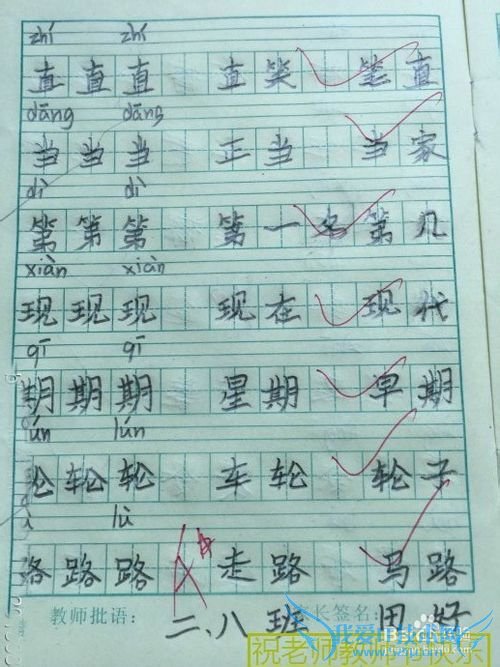 zhí zhí
直直直 直笑 笔直
dāng dāng
当当当 正当 当家
dì dì
第第第 第一名 第几
xiàn xiàn
现现现 现在 现代
qī qī
期期期 星期 早期
ún lún
轮轮轮 车轮 轮子
lù
路路路 走路 马路
教师批语: 二、八班 长签名:
祝老师教师节快乐